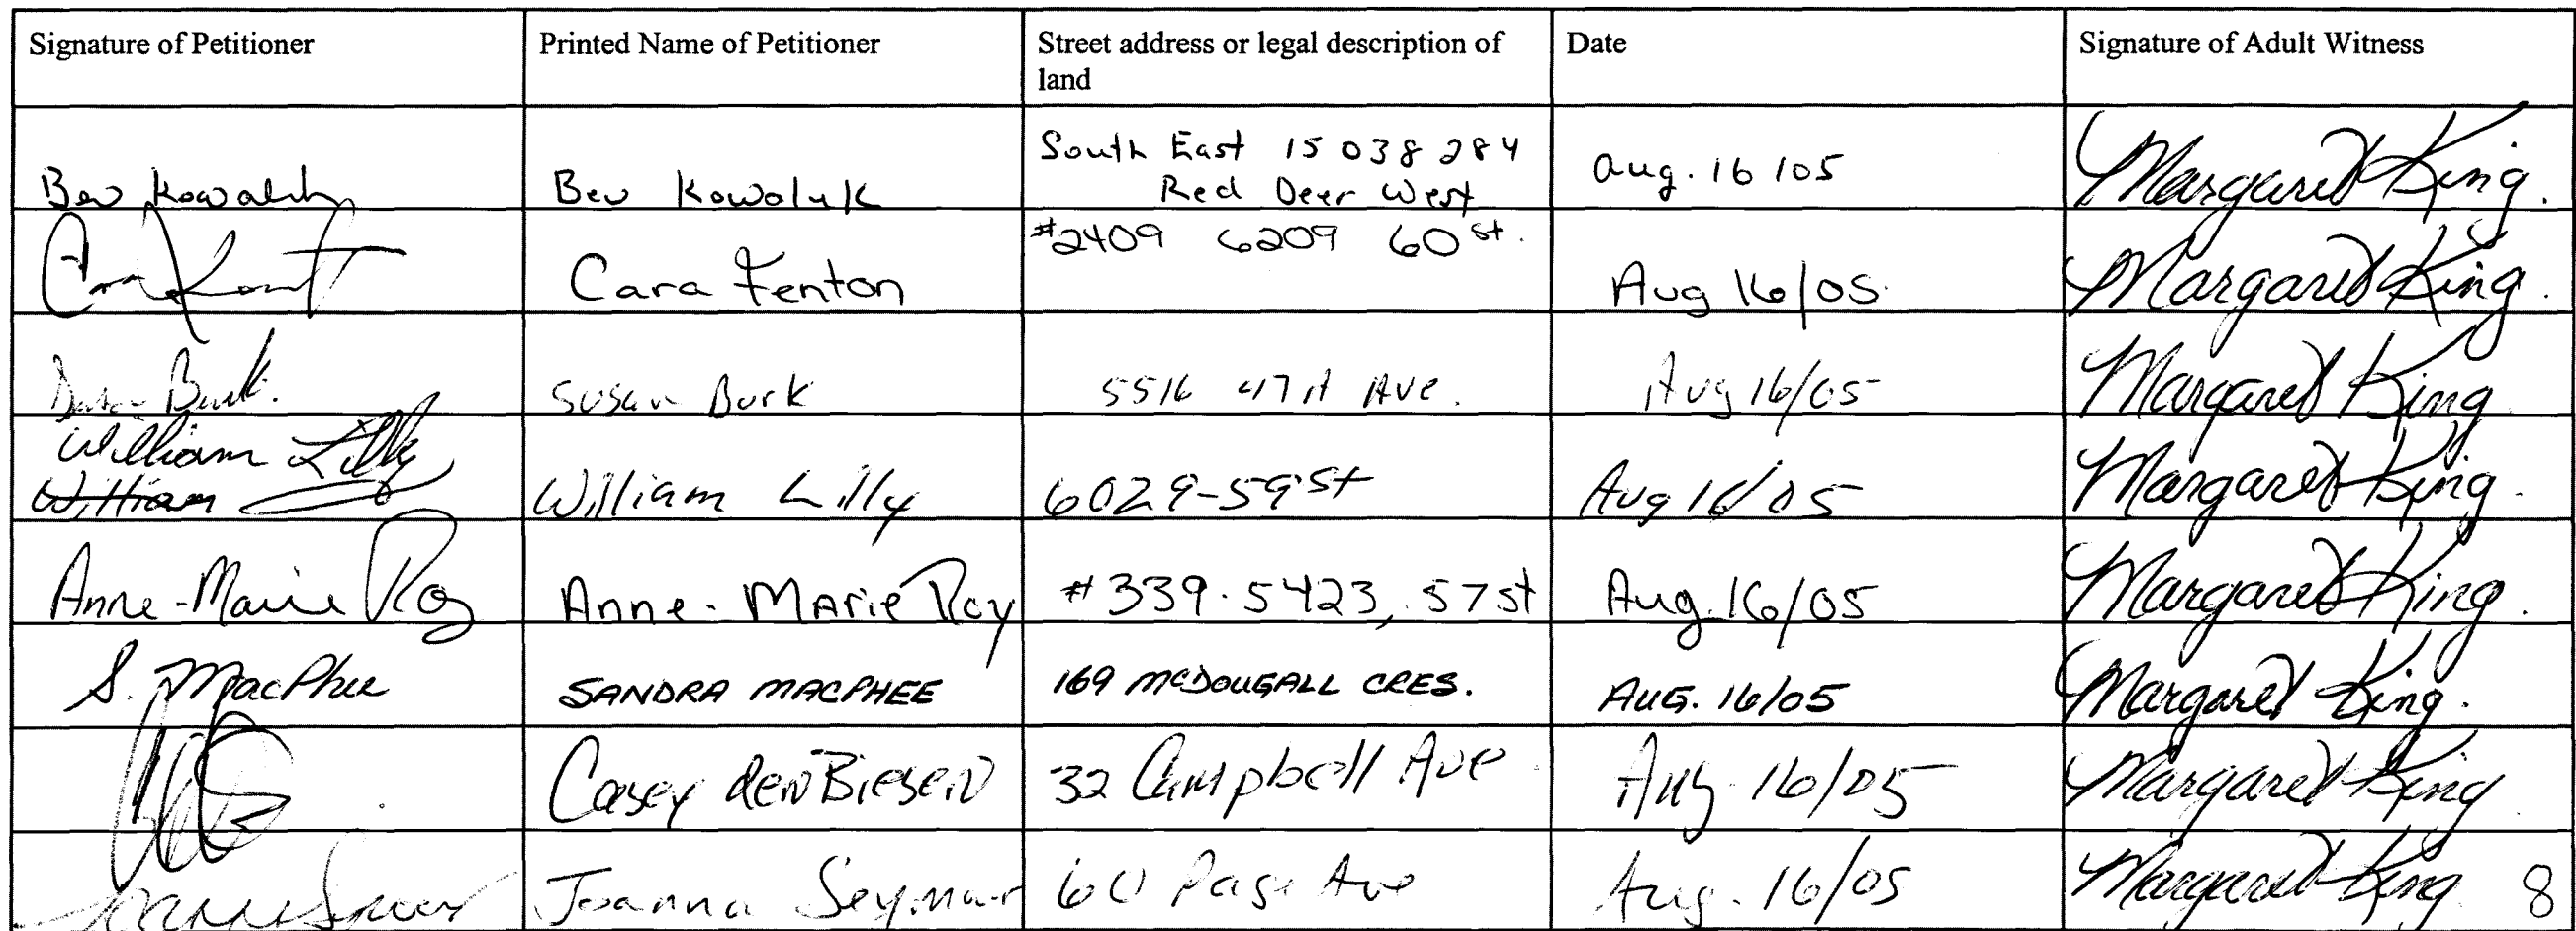 Signature of Petitioner Printed Name of Petitioner Street address or legal description of Date Signature of Adult Witness
land
South East 15 038 284
Bev Kowaluk Bev Kowaluk Red Deer West Aug. 16/05 Margaret King.
#2409 6209 60 st.
Cara Fenton Aug 16/05. Margaret King.
Burk. Susan Burk 5516 47A Ave. Aug 16/05 Margaret King
William Lilly
William William Lilly 6029-59 St Aug 16/05 Margaret King.
Anne-Marie Roy Anne-Marie Roy #339. 5423, 57 st Aug. 16/05 Margaret King.
S. MacPhee SANDRA MACPHEE 169 McDOUGALL CRES. AUG. 16/05 Margaret King.
Casey denBiesen 32 Campbell Ave Aug. 16/05 Margaret King
Joanna Seymour 60 Page Ave Aug. 16/05 Margaret King 8